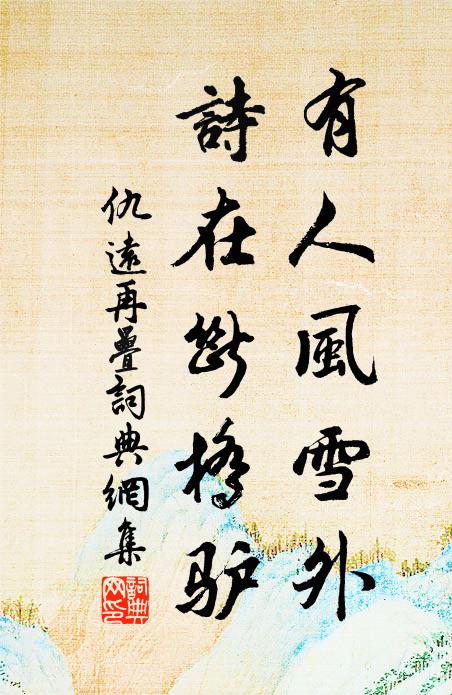 有人風雪外
詩在斷橋驴
仇遠再疊詞典網集
詞典网印